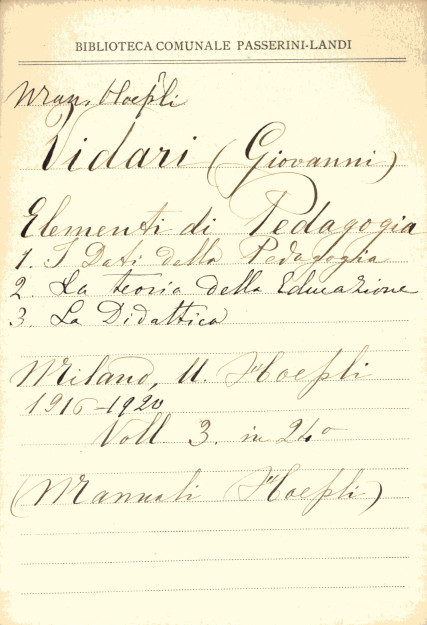 BIBLIOTECA COMUNALE PASSERINI-LANDI
Man. Hoepli
Vidari (Giovanni)
Elementi di Pedagogia
1. I Dati della Pedagogia
2. La teoria della Educazione
3. La Didattica
Milano, U. Hoepli
1916-1920
Voll 3. in 24°
(Manuali Hoepli)